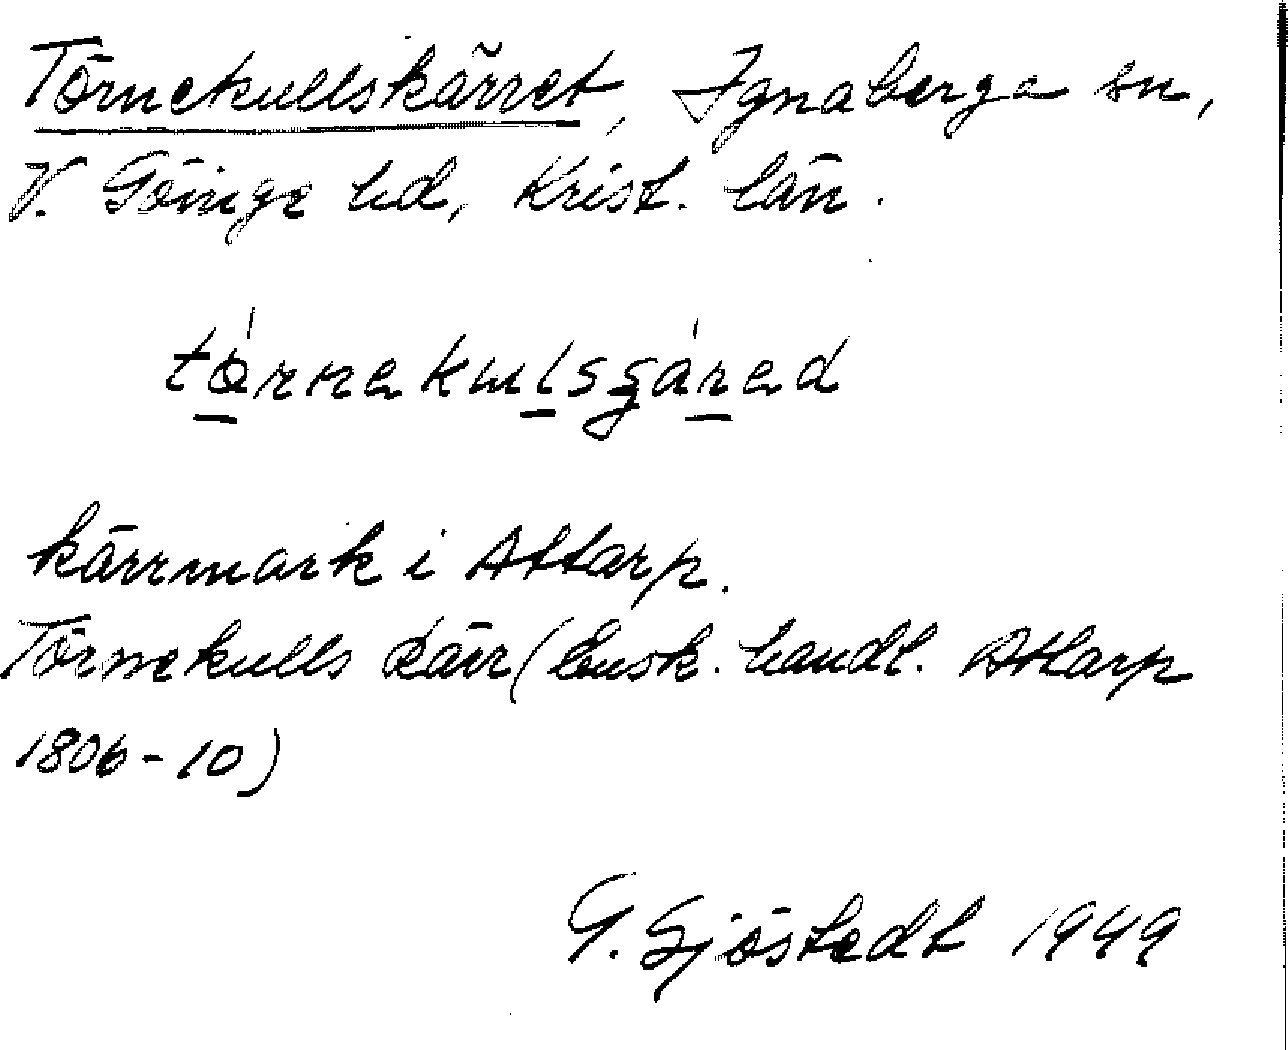 Törnekullskärret, Ignaberga sn,
V. Göinge hd, Krist. län.
kärrmark i Attarp.
Törnekulls Kärr (Ensk. handl. Attarp
1806-10)
G. Sjöstedt 1949